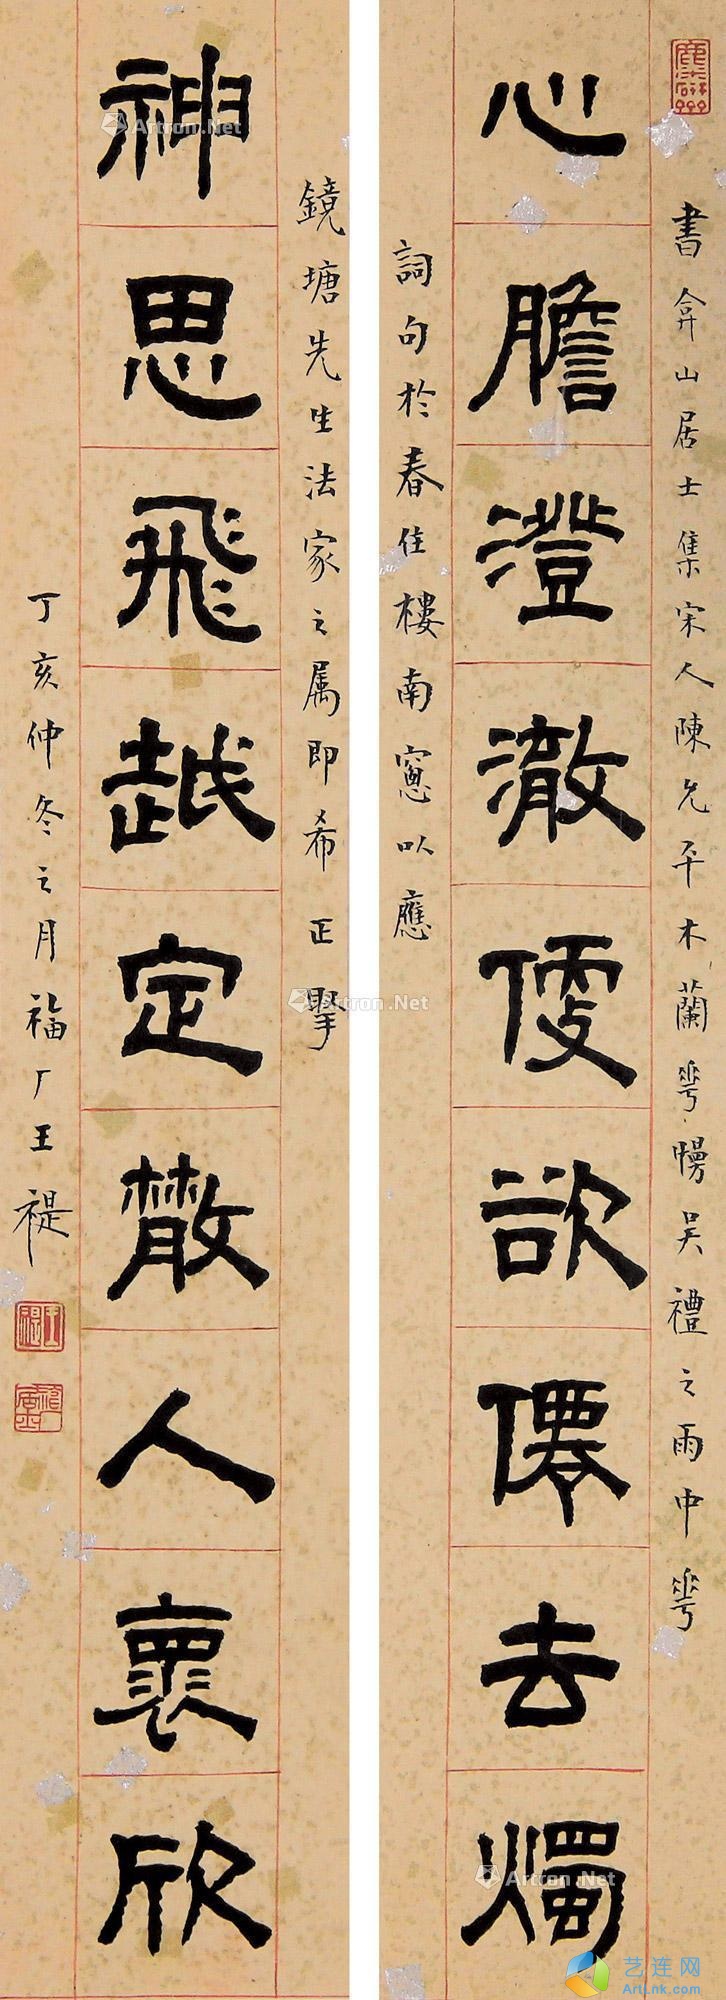 書弇山居士集宋人陳允平木蘭華慢吳禮之雨中華
心膽澄澈便欲僊去燭
詞句於春住樓南窻以應
鏡塘先生法家之属即希正掔
神思飛越定散人褱欣
丁亥仲冬之月福厂王禔
王禔
Artron.Net
Artron.Net
Artron.Net
Artron.Net
艺连网
ArtLnk.com